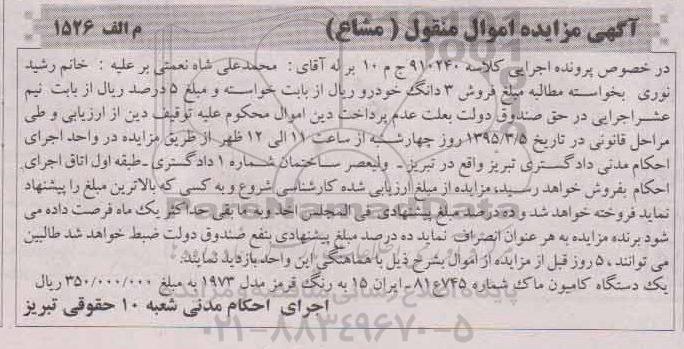 آگهی مزایده اموال منقول ( مشاع) م الف ۱۵۲۶
در خصوص پرونده اجرایی کلاسه ۹۱۰۲۴۰ ج م ۱۰ بر له آقای : محمدعلی شاه نعمتی بر علیه : خانم رشید
نوری بخواسته مطالبه مبلغ فروش ۳ دانگ خودرو ریال از بابت خواسته و مبلغ ۵ درصد ریال از بابت نیم
عشر اجرایی در حق صندوق دولت بعلت عدم پرداخت دین اموال محکوم علیه توقیف دین از ارزیابی و طی
مراحل قانونی در تاریخ ۱۳۹۵/۳/۵ روز چهارشنبه از ساعت ۱۱ الی ۱۲ ظهر از طریق مزایده در واحد اجرای
احکام مدنی دادگستری تبریز واقع در تبریز - ولیعصر ساختمان شماره ۱ دادگستری - طبقه اول اتاق اجرای
احکام بفروش خواهد رسید، مزایده از مبلغ ارزیابی شده کارشناسی شروع و به کسی که بالاترین مبلغ را پیشنهاد
نماید فروخته خواهد شد و ده درصد مبلغ پیشنهادی فی المجلس اخذ و به ما بقی حداکثر یک ماه فرصت داده می
شود برنده مزایده به هر عنوان انصراف نماید ده درصد مبلغ پیشنهادی بنفع صندوق دولت ضبط خواهد شد طالبین
می توانند ، ۵ روز قبل از مزایده از اموال بشرح ذیل با هماهنگی این واحد بازدید نمایند.
یک دستگاه کامیون ماک شماره ۷۴۵ع۸۱ - ایران ۱۵ به رنگ قرمز مدل ۱۹۷۳ به مبلغ ۳۵۰/۰۰۰/۰۰۰ ریال
اجرای احکام مدنی شعبه ۱۰ حقوقی تبریز
ParsNamadData
۰۲۱-۸۸۳۴۹۶۷۰-۵